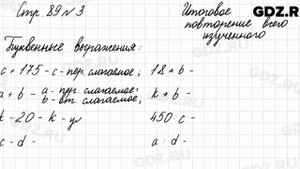 Стр. 89 № 3
Итоговое
повторение всего
изученного
GDZ.R
Буквенные выражения:
c + 175 - c - пер. слагаемое,
a + b - a - пер. слагаемое;
b - вт. слагаемое,
k - 20 - k - ум
c - d -
18 * b -
k * b -
450 : c -
a : d -